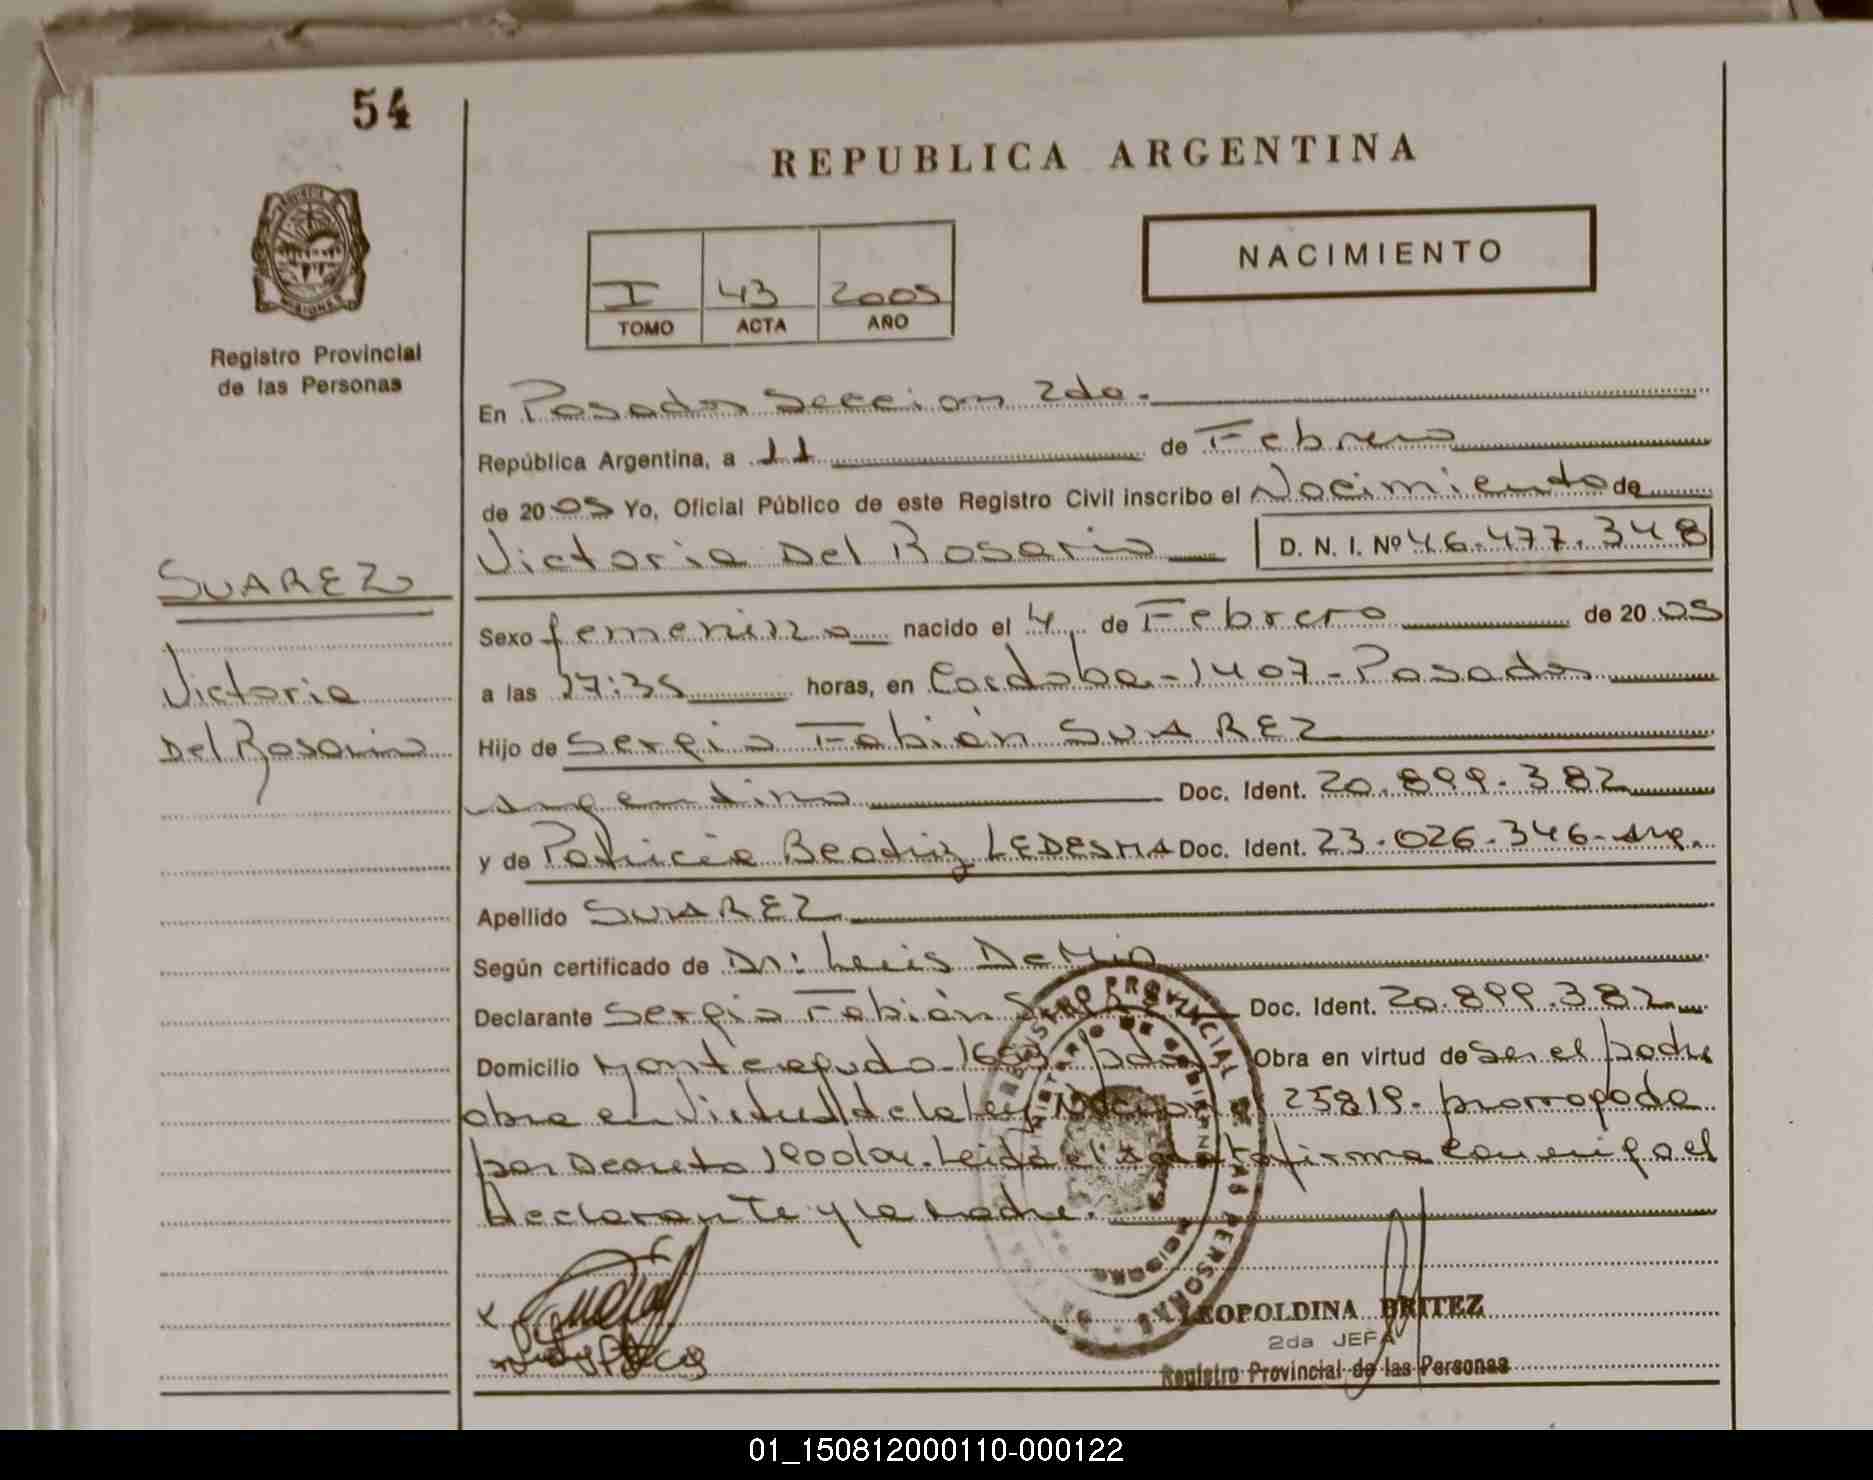 54
REPUBLICA ARGENTINA
NACIMIENTO
I 43 2005
TOMO ACTA AÑO
MISIONES
Registro Provincial
de las Personas
En Posadas Seccion 2da.
República Argentina, a 11 de Febrero
de 2005 Yo, Oficial Público de este Registro Civil inscribo el Nacimiento de
Victoria Del Rosario D. N. I. Nº 46.477.348
SUAREZ
Victoria
Del Rosario
Sexo femenino nacido el 4 de Febrero de 2005
a las 17:35 horas, en Cordoba-1407-Posadas
Hijo de Sergio Fabián SUAREZ
argentino Doc. Ident. 20.899.382
y de Patricia Beatriz LEDESMA Doc. Ident. 23.026.346-arg.
Apellido SUAREZ
Según certificado de Dr: Luis De Mio
Declarante Sergio Fabián Doc. Ident. 20.899.382
Domicilio Obra en virtud de Ser el padre
obra en Virtud de la Ley 25819. prorrogada
por Decreto Leida el Acta firma conmigo el
Declarante y la madre.
REGISTRO PROVINCIAL DE LAS PERSONAS
MINISTERIO DE GOBIERNO
LEOPOLDINA BRITEZ
2da JEFA
Registro Provincial de las Personas
01_150812000110-000122